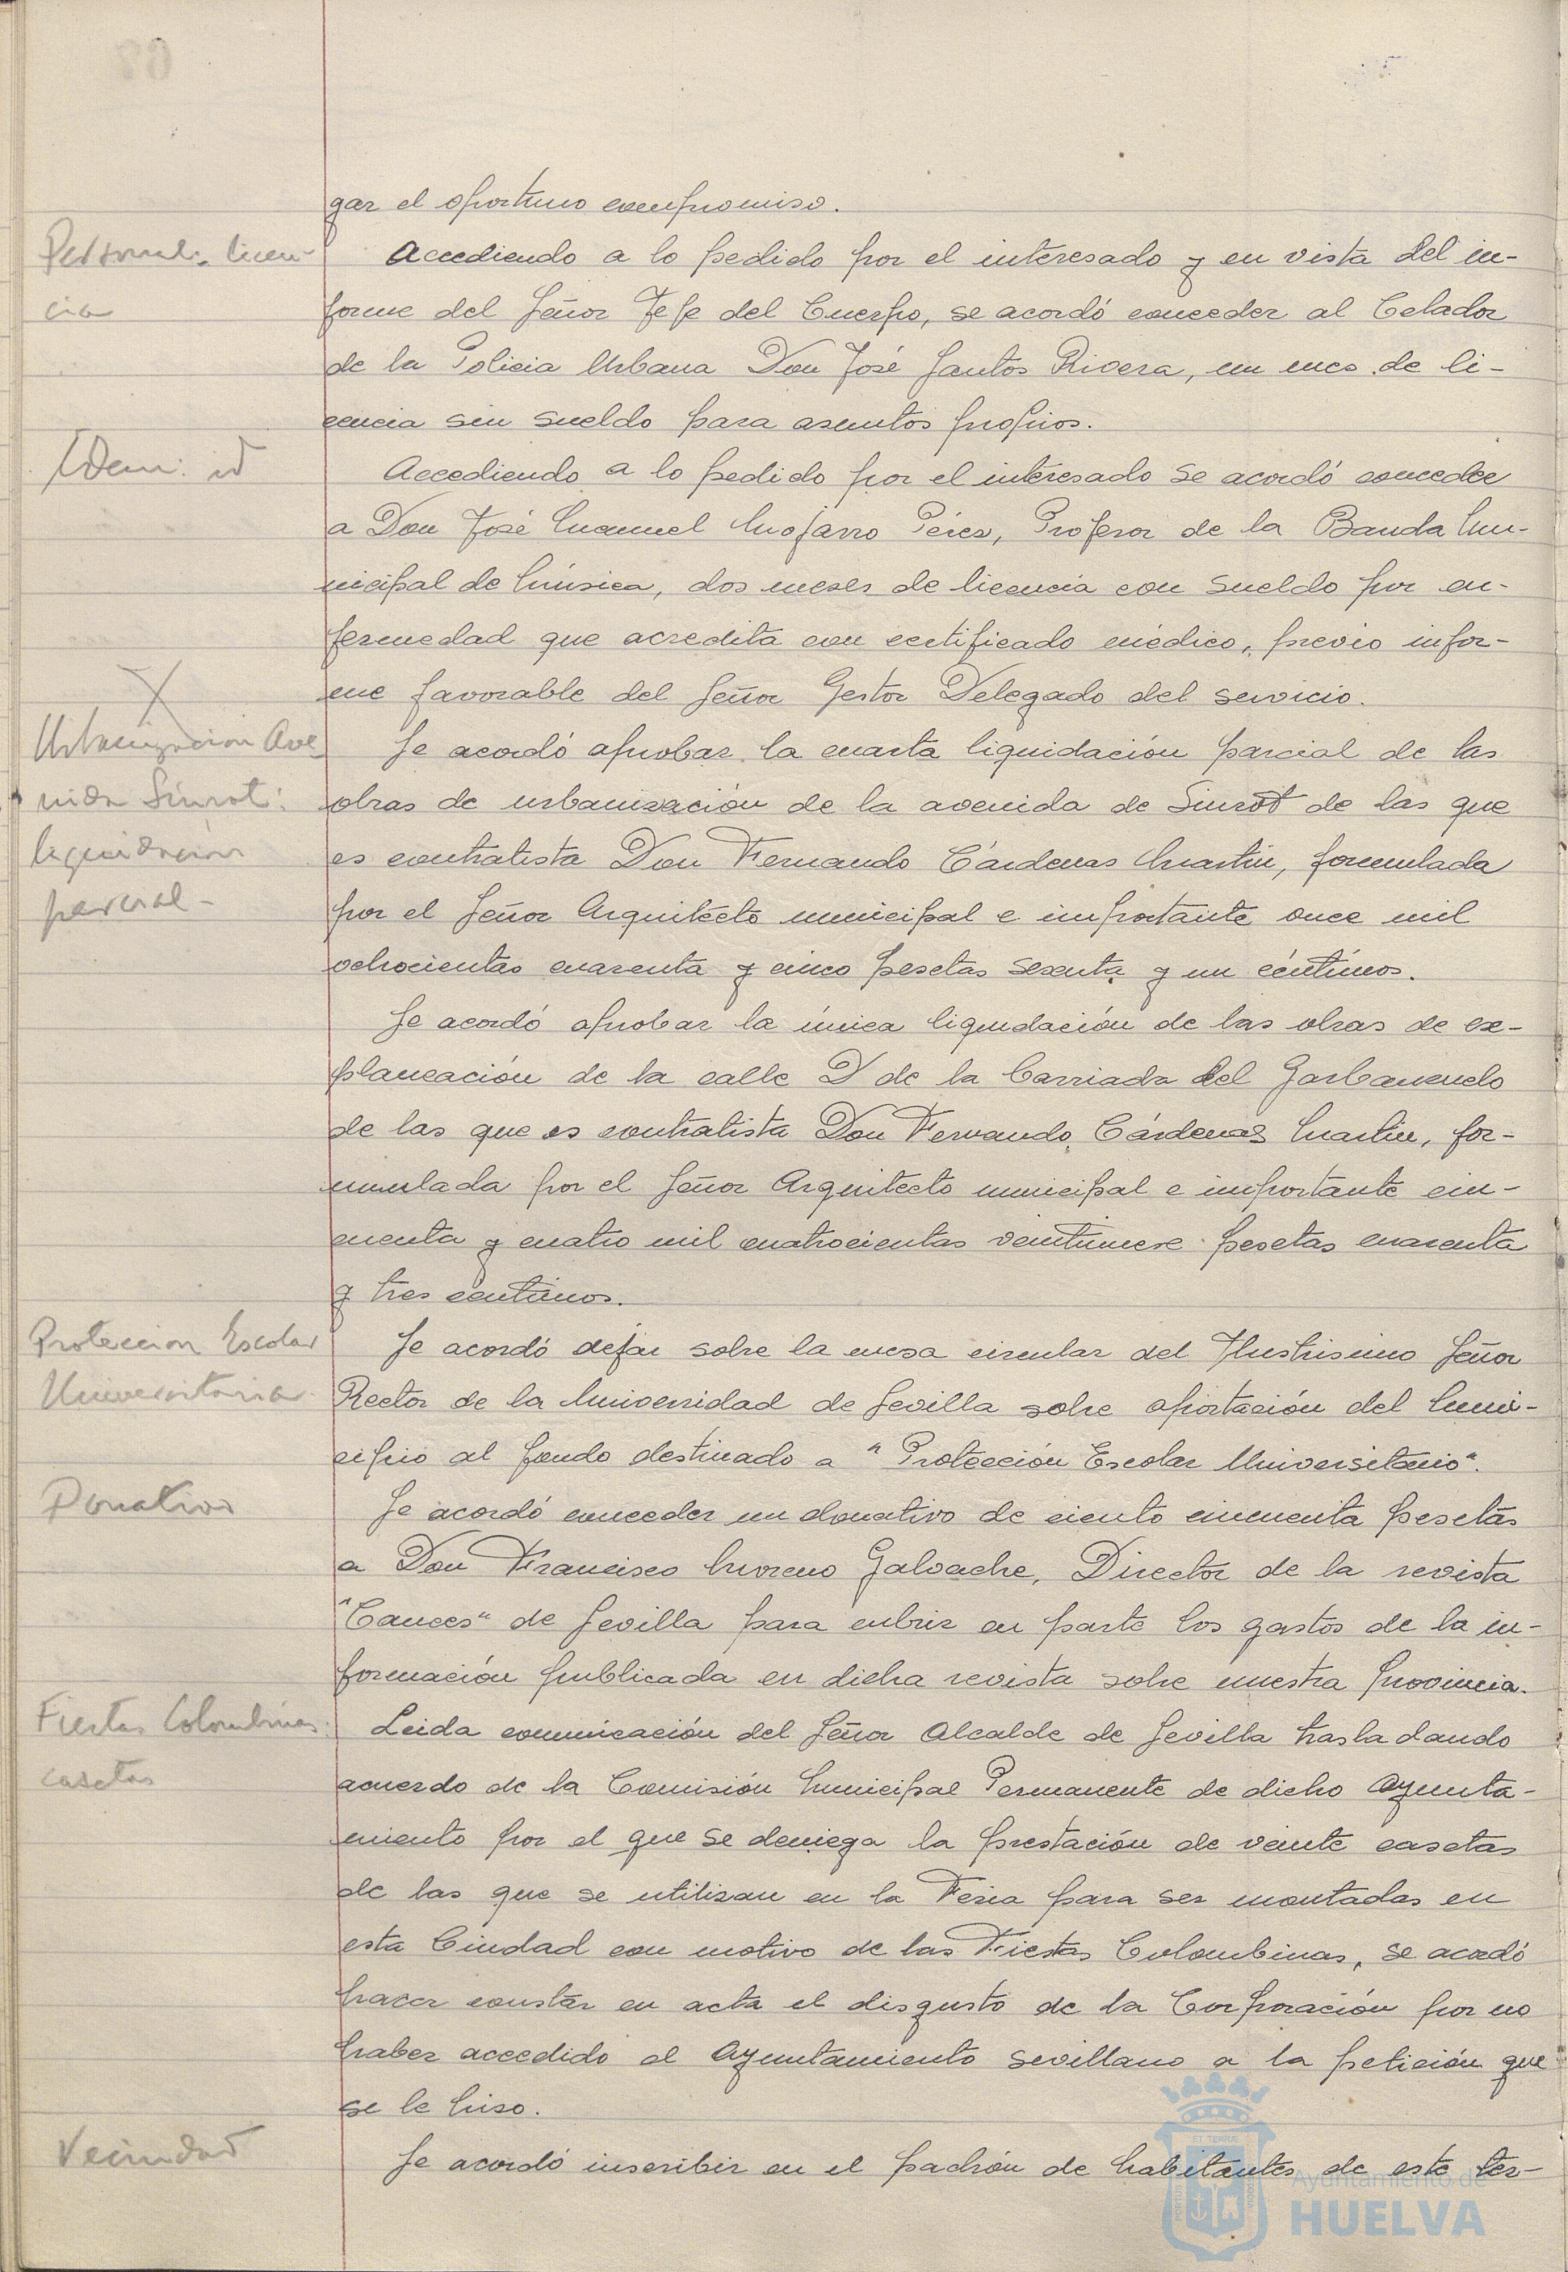 gar el oportuno compromiso.
Personal. licen-
cia
Accediendo a lo pedido por el interesado y en vista del in-
forme del Señor Jefe del Cuerpo, se acordó conceder al Celador
de la Policia Urbana Don José Santos Rivera, un mes de li-
cencia sin sueldo para asuntos propios.
Idem: id
Accediendo a lo pedido por el interesado se acordó conceder
a Don José Manuel Mojarro Pérez, Profesor de la Banda Mu-
nicipal de Música, dos meses de licencia con sueldo por en-
fermedad que acredita con certificado médico, previo infor-
me favorable del Señor Gestor Delegado del servicio.
Urbanización Ave
nida Siurot:
liquidación
parcial-
Se acordó aprobar la cuarta liquidación parcial de las
obras de urbanización de la avenida de Siurot de las que
es contratista Don Fernando Cárdenas Martin, formulada
por el Señor Arquitecto municipal e importante once mil
ochocientas cuarenta y cinco pesetas sesenta y un céntimos.
Se acordó aprobar la única liquidación de las obras de ex-
planeación de la calle D de la Barriada del Garbanzuelo
de las que es contratista Don Fernando Cárdenas Martin, for-
mulada por el Señor Arquitecto municipal e importante cin-
cuenta y cuatro mil cuatrocientas veintinueve pesetas cuarenta
y tres centimos.
Proteccion Escolar
Universitaria.
Se acordó dejar sobre la mesa circular del Ilustrisimo Señor
Rector de la Universidad de Sevilla sobre aportación del Muni-
cipio al fondo destinado a "Protección Escolar Universitario".
Donativo
Se acordó conceder un donativo de ciento cincuenta pesetas
a Don Francisco Moreno Galvache, Director de la revista
"Cauces" de Sevilla para cubrir en parte los gastos de la in-
formación publicada en dicha revista sobre nuestra provincia.
Fiestas Colombinas:
casetas
Leida comunicación del Señor Alcalde de Sevilla trasladando
acuerdo de la Comisión Municipal Permanente de dicho Ayunta-
miento por el que se deniega la prestación de veinte casetas
de las que se utilizan en la Feria para ser montadas en
esta Ciudad con motivo de las Fiestas Colombinas, se acordó
hacer constar en acta el disgusto de la Corporación por no
haber accedido el Ayuntamiento sevillano a la petición que
se le hizo.
Vecindad
Se acordó inscribir en el padrón de habitantes de este tér-
Ayuntamiento de
HUELVA